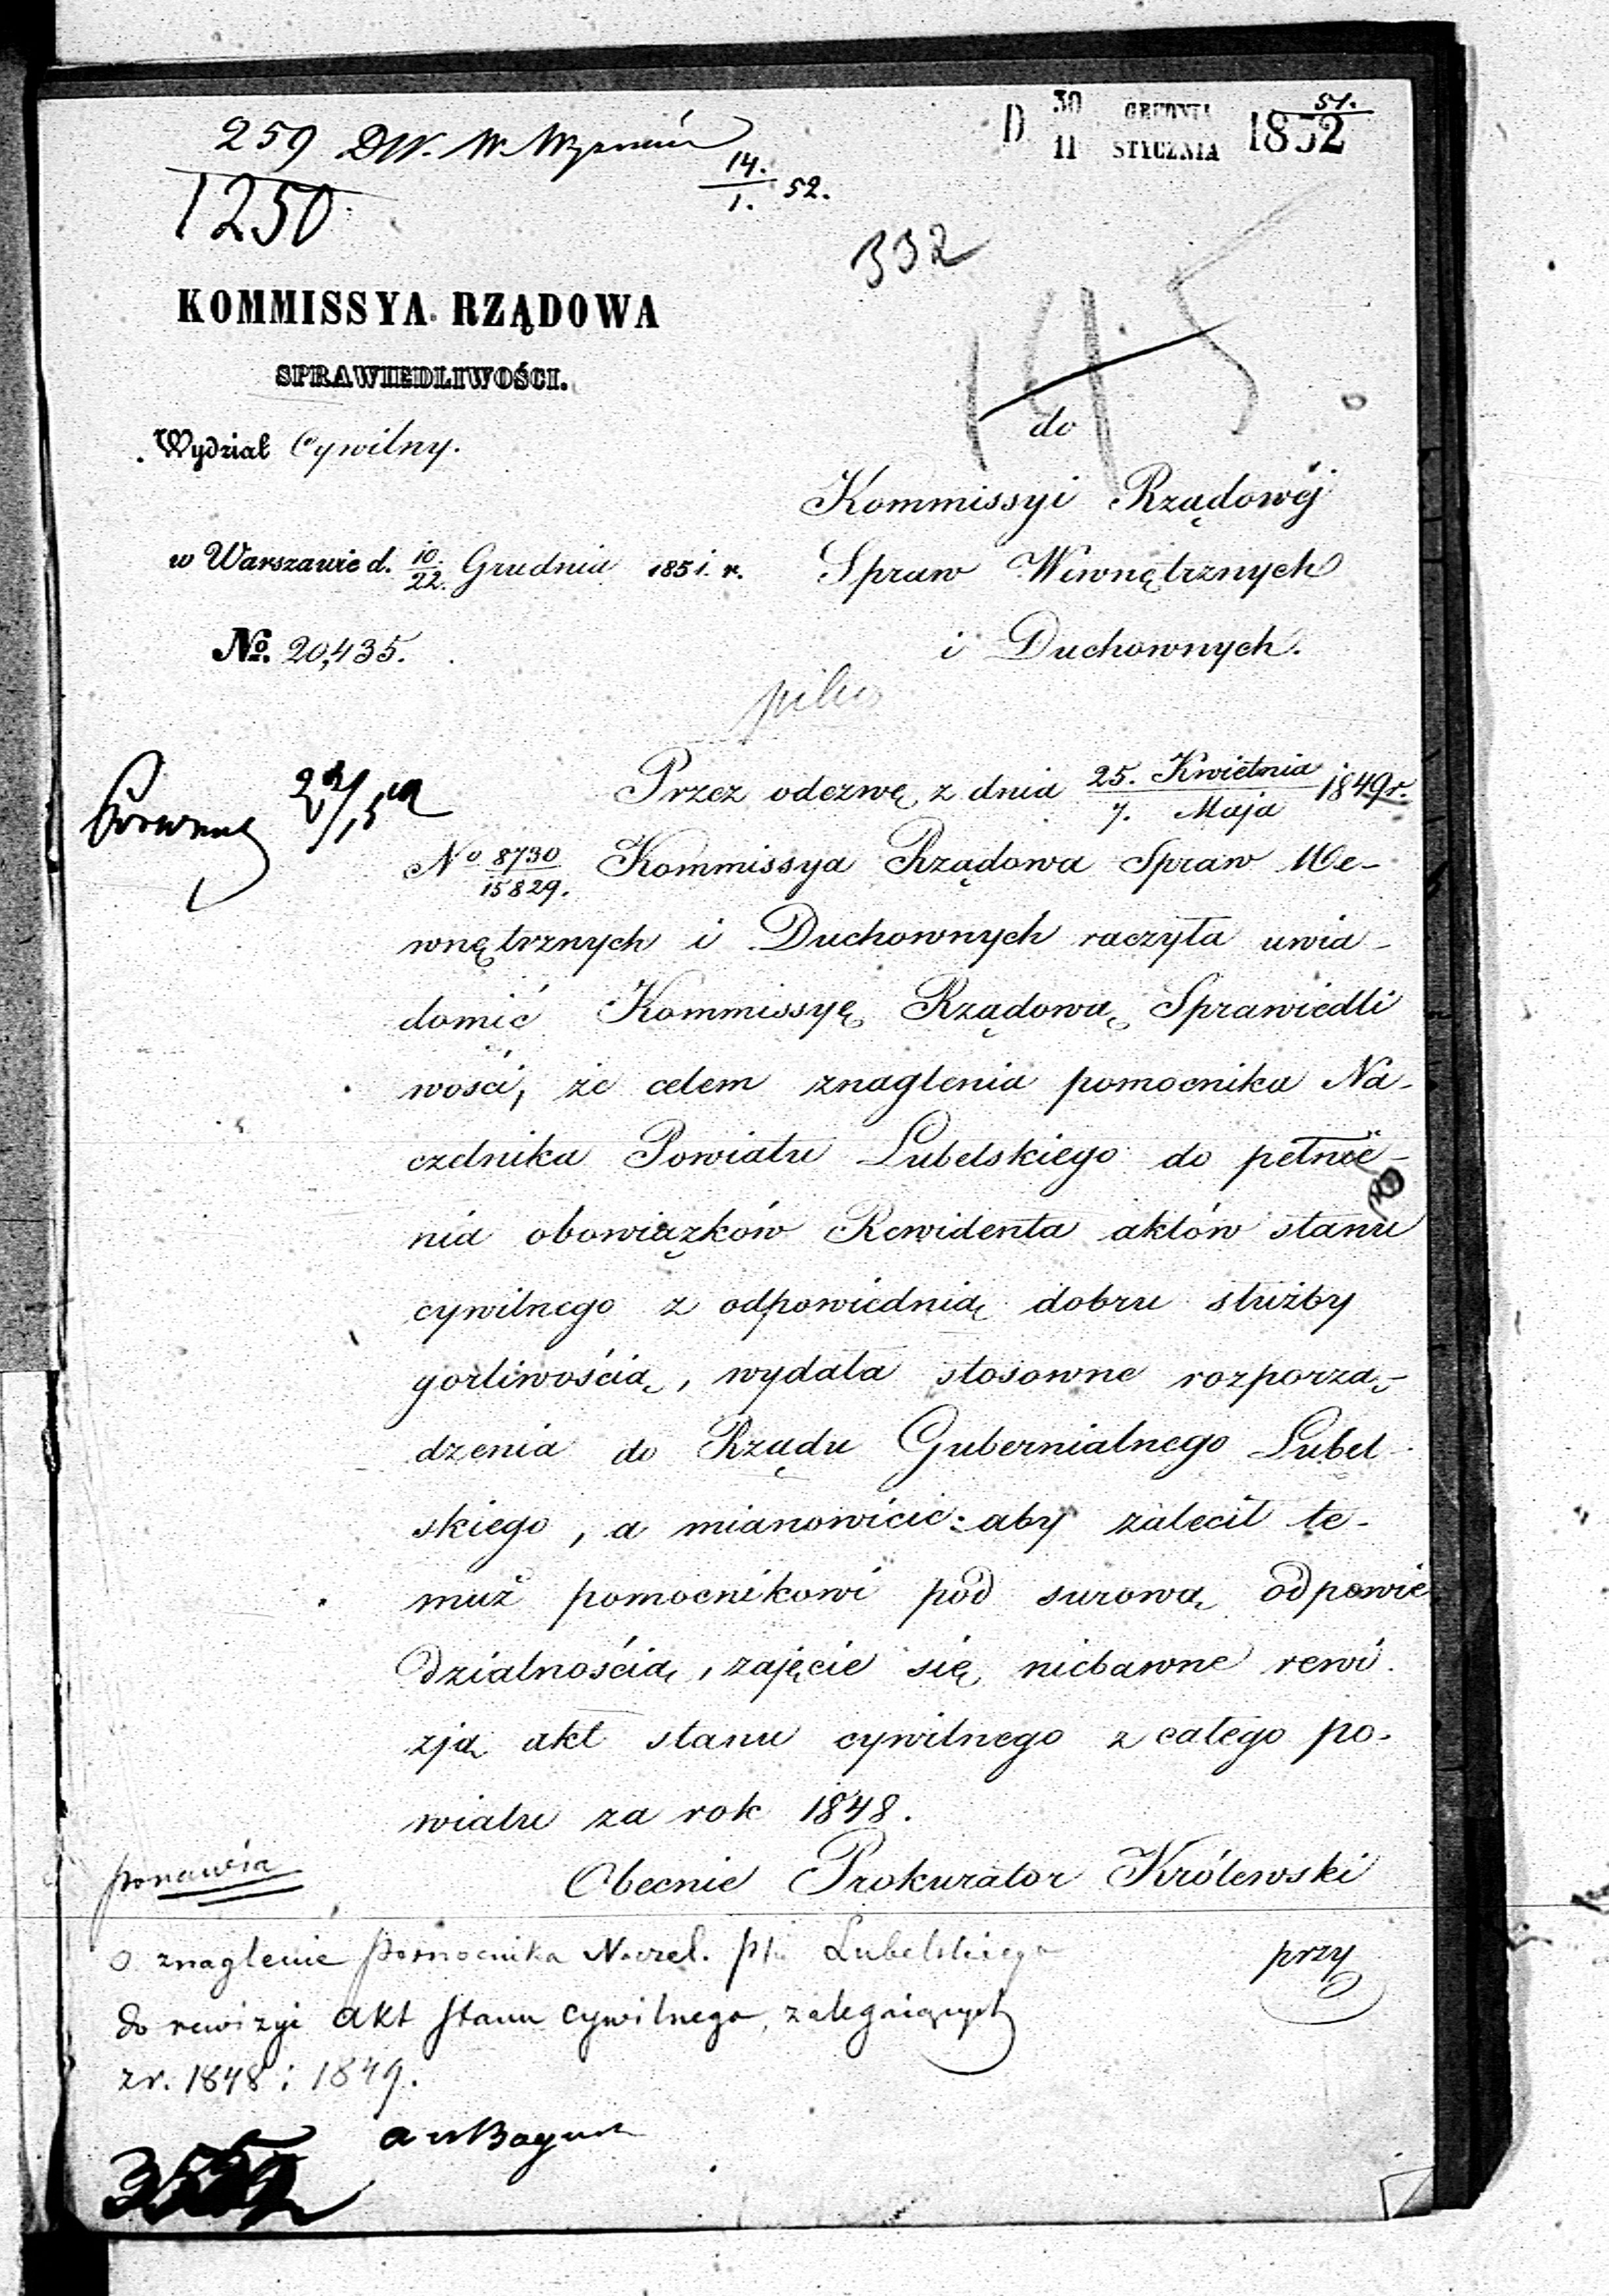 259 DW. W.
1250
14./1. 52.
D 30 GRUDNIA / 11 STYCZNIA 1852 51.
332
145
KOMMISSYA RZĄDOWA
SPRAWIEDLIWOŚCI.
Wydział Cywilny.
w Warszawie d. 10/22. Grudnia 1851. r.
No. 20,435.
do
Kommissyi Rządowéj
Spraw Wewnętrznych
i Duchownych.
pilno
Przez odezwę z dnia 25. Kwietnia / 7. Maja 1849 r.
No 8730/15829. Kommissya Rządowa Spraw We-
wnętrznych i Duchownych raczyła uwia-
domić Kommissyę Rządową Sprawiedli
wości, że celem znaglenia pomocnika Na-
czelnika Powiatu Lubelskiego do pełnie-
nia obowiązków Rewidenta aktów stanu
cywilnego z odpowiednią dobru służby
gorliwością, wydała stosowne rozporzą-
dzenia do Rządu Gubernialnego Lubel-
skiego, a mianowicie: aby zalecił te-
muż pomocnikowi pod surową odpowie
dzialnością, zajęcie się niebawne rewi-
zją akt stanu cywilnego z całego po-
wiatu za rok 1848.
Obecnie Prokurator Królewski
przy
ponawia
o znaglenie pomocnika Naczel. ptu Lubelskiego
do rewizyi akt stanu cywilnego, zalegających
z r. 1848 i 1849.